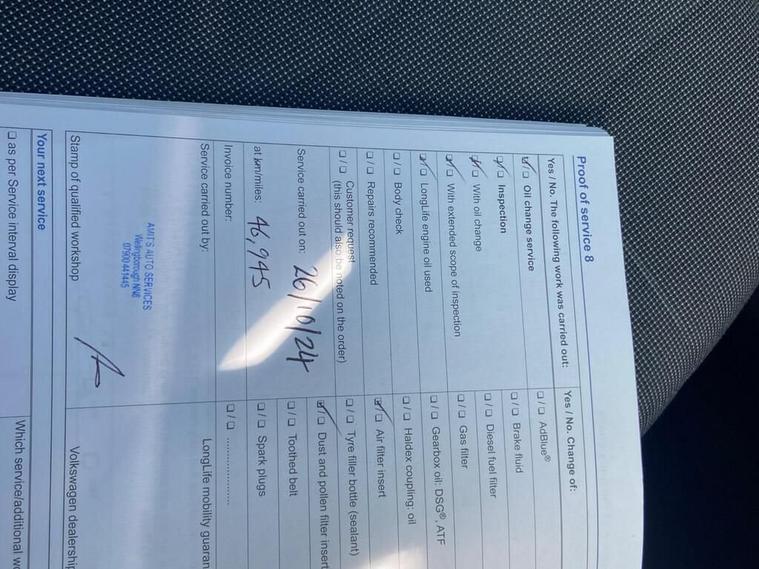 Proof of service 8
Yes / No. The following work was carried out:
☑/☐ Oil change service
☑/☐ Inspection
☑/☐ With oil change
☑/☐ With extended scope of inspection
☑/☐ LongLife engine oil used
☐/☐ Body check
☐/☐ Repairs recommended
☐/☐ Customer request
(this should also be noted on the order)
Service carried out on: 26/10/24
at km/miles: 46,945
Invoice number:
Service carried out by:
AMITS AUTO SERVICES
Wellingborough NN8
07900 441445
Stamp of qualified workshop
Yes / No. Change of:
☐/☐ AdBlue®
☐/☐ Brake fluid
☐/☐ Diesel fuel filter
☐/☐ Gas filter
☐/☐ Gearbox oil: DSG®, ATF
☐/☐ Haldex coupling: oil
☑/☐ Air filter insert
☐/☐ Tyre filler bottle (sealant)
☑/☐ Dust and pollen filter insert
☐/☐ Toothed belt
☐/☐ Spark plugs
☐/☐ ....................
LongLife mobility guaran
Volkswagen dealership
Your next service
☐ as per Service interval display
Which service/additional wo